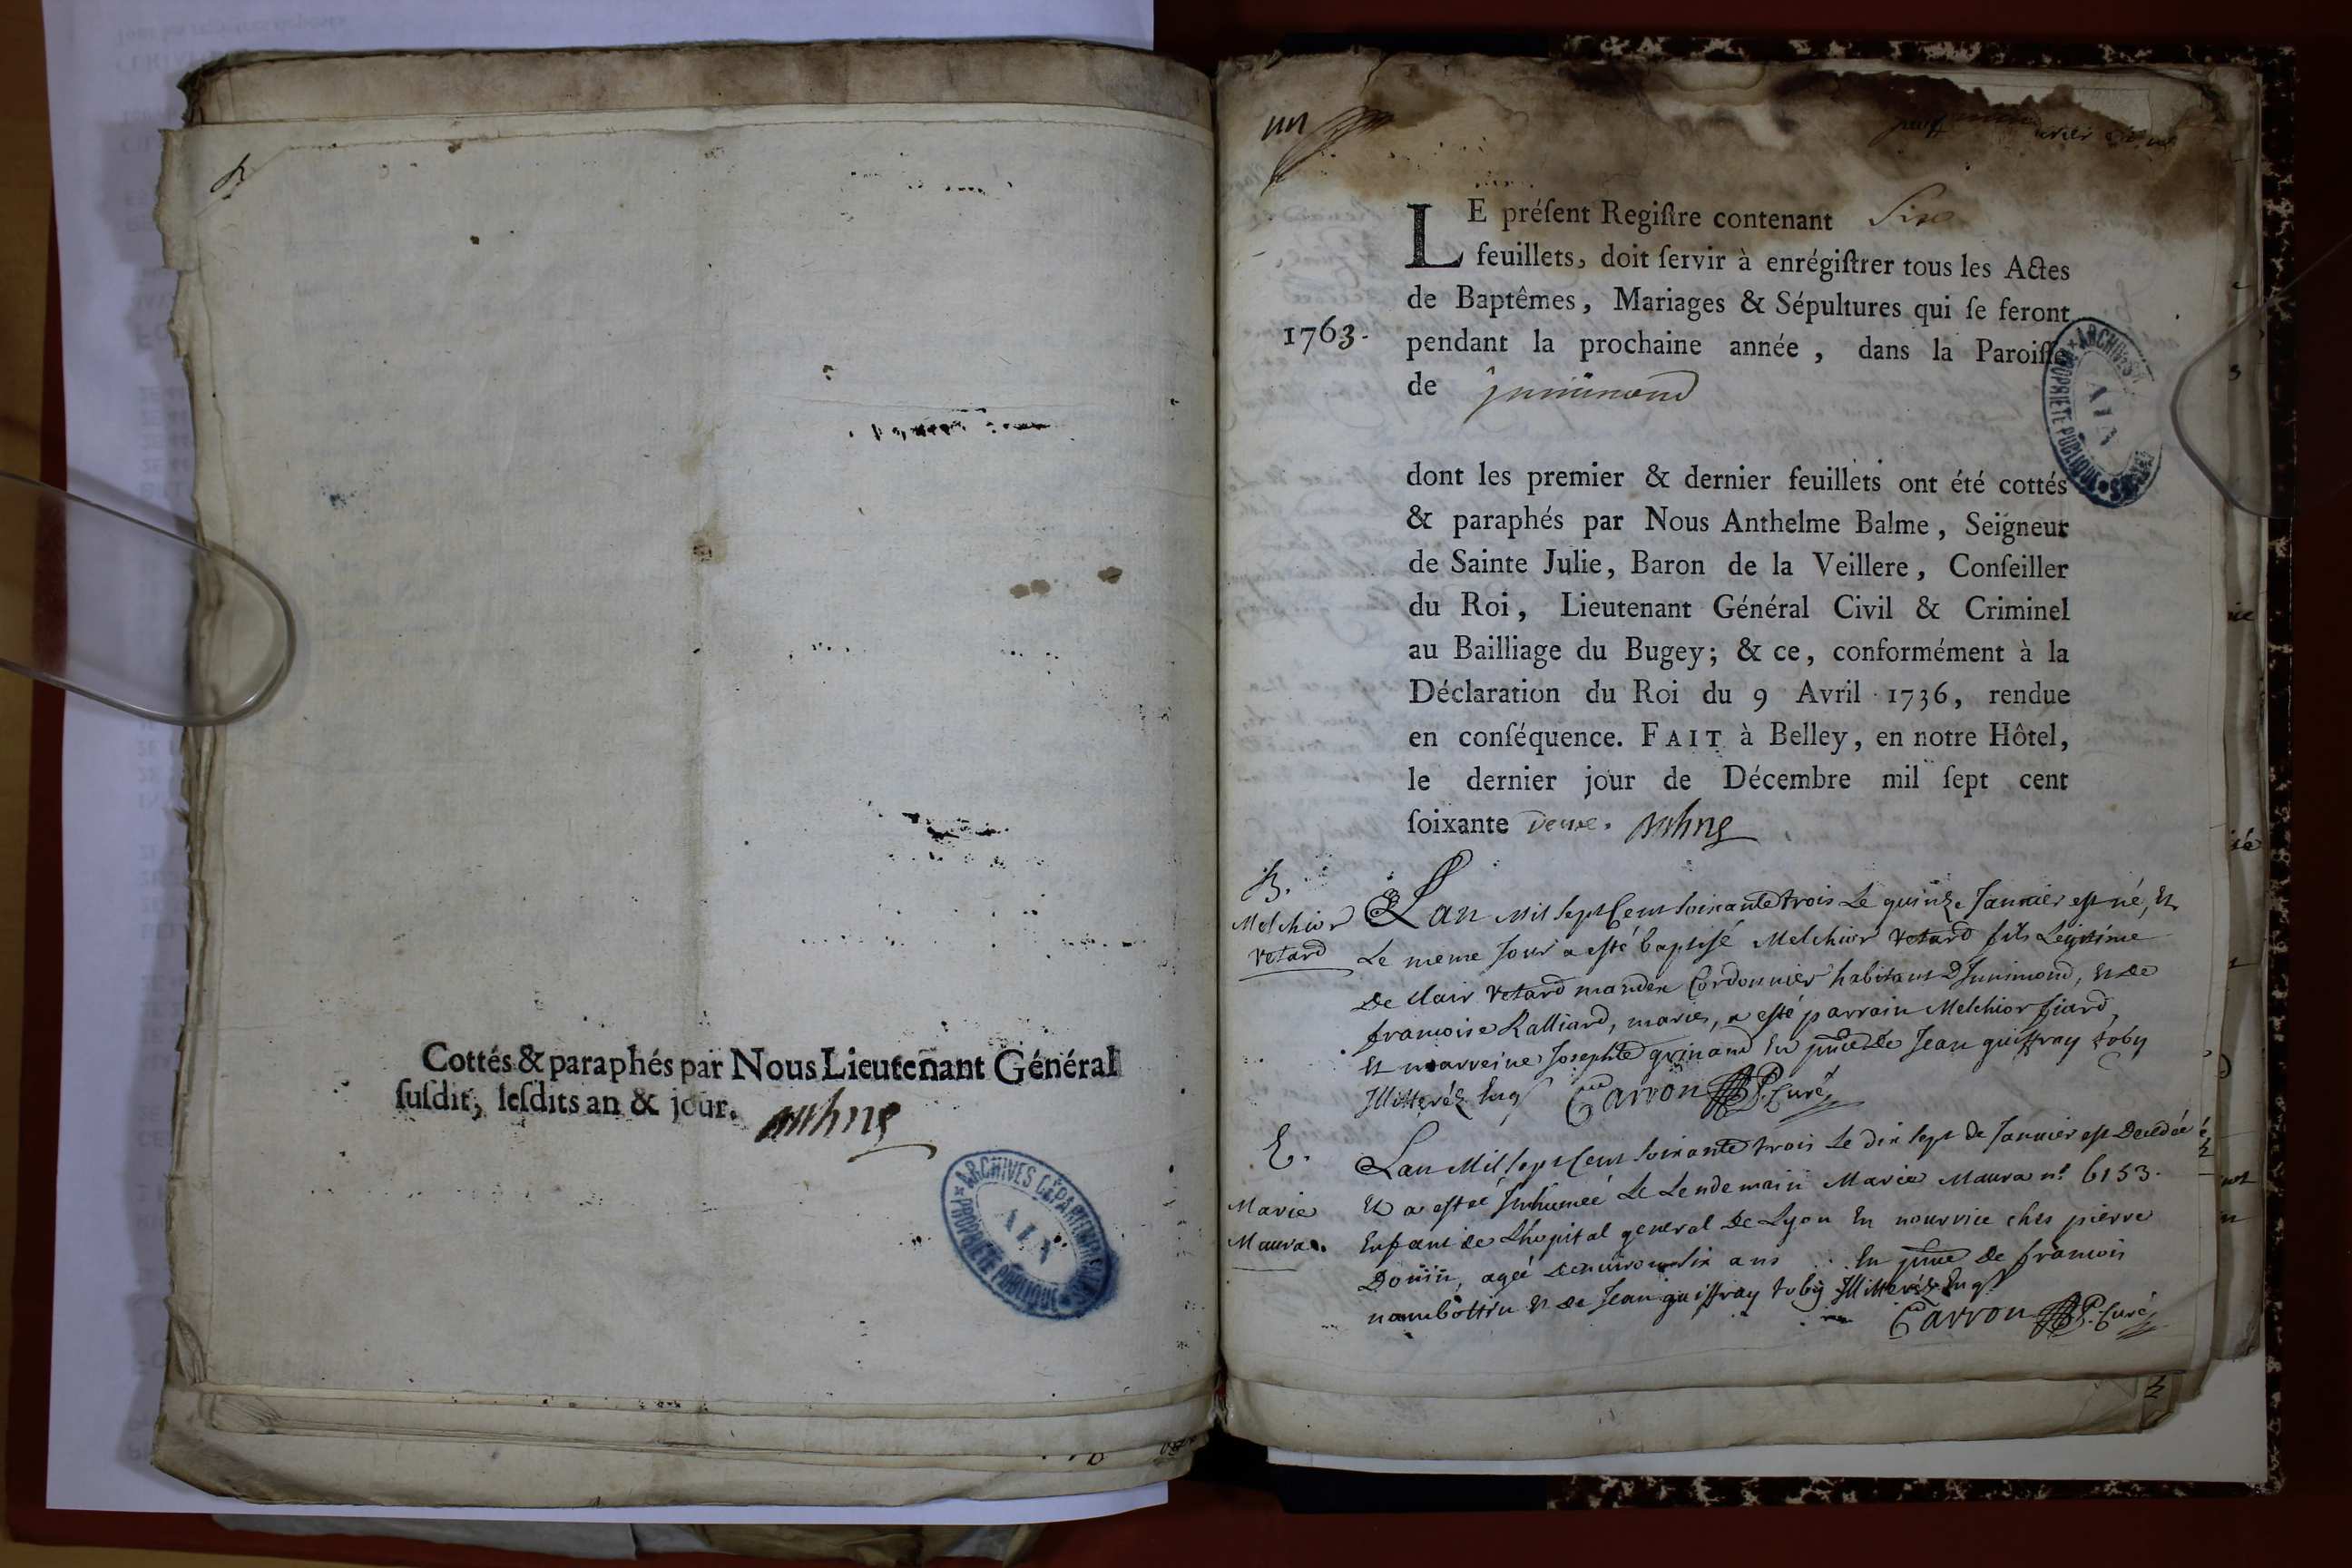 Cottés & paraphés par Nous Lieutenant Général
ſuſdit, leſdits an & jour.
ARCHIVES DÉPARTEMENTALES
AIN
PROPRIÉTÉ PUBLIQUE
un
LE préſent Regiſtre contenant Six
feuillets, doit ſervir à enrégiſtrer tous les Actes
de Baptêmes, Mariages & Sépultures qui ſe feront
1763. pendant la prochaine année, dans la Paroiſſe
de Junimond
ARCHIVES
AIN
PROPRIÉTÉ PUBLIQUE
dont les premier & dernier feuillets ont été cottés
& paraphés par Nous Anthelme Balme, Seigneur
de Sainte Julie, Baron de la Veillere, Conſeiller
du Roi, Lieutenant Général Civil & Criminel
au Bailliage du Bugey; & ce, conformément à la
Déclaration du Roi du 9 Avril 1736, rendue
en conſéquence. FAIT à Belley, en notre Hôtel,
le dernier jour de Décembre mil ſept cent
ſoixante deux.
B.
Melchior
vetard
Lan mil sept Cent soixante trois Le quinze Janvier est né, Et
Le meme Jour a esté baptisé Melchior vetard fils Legitime
De Clair vetard Cordonnier habitant D Junimond, Et de
francoise Ralliard, mariés, a esté parrain Melchior fiard,
Et marreine Josephte guinand En pnce de Jean guiffray toby
Illitterés Enq Carron Curé
E.
Marie
Maura.
Lan Mil sept Cent soixante trois Le dix sept de Janvier est Decedée
Et a estée Inhumée Le Lendemain Marie Maura n° 6153.
Enfant de Lhopital general De Lyon En nourrice ches pierre
Doüin, ageé denviron six ans En pnce De francois
nambottin Et de Jean guiffray toby Illitterés Enq
Carron Curé